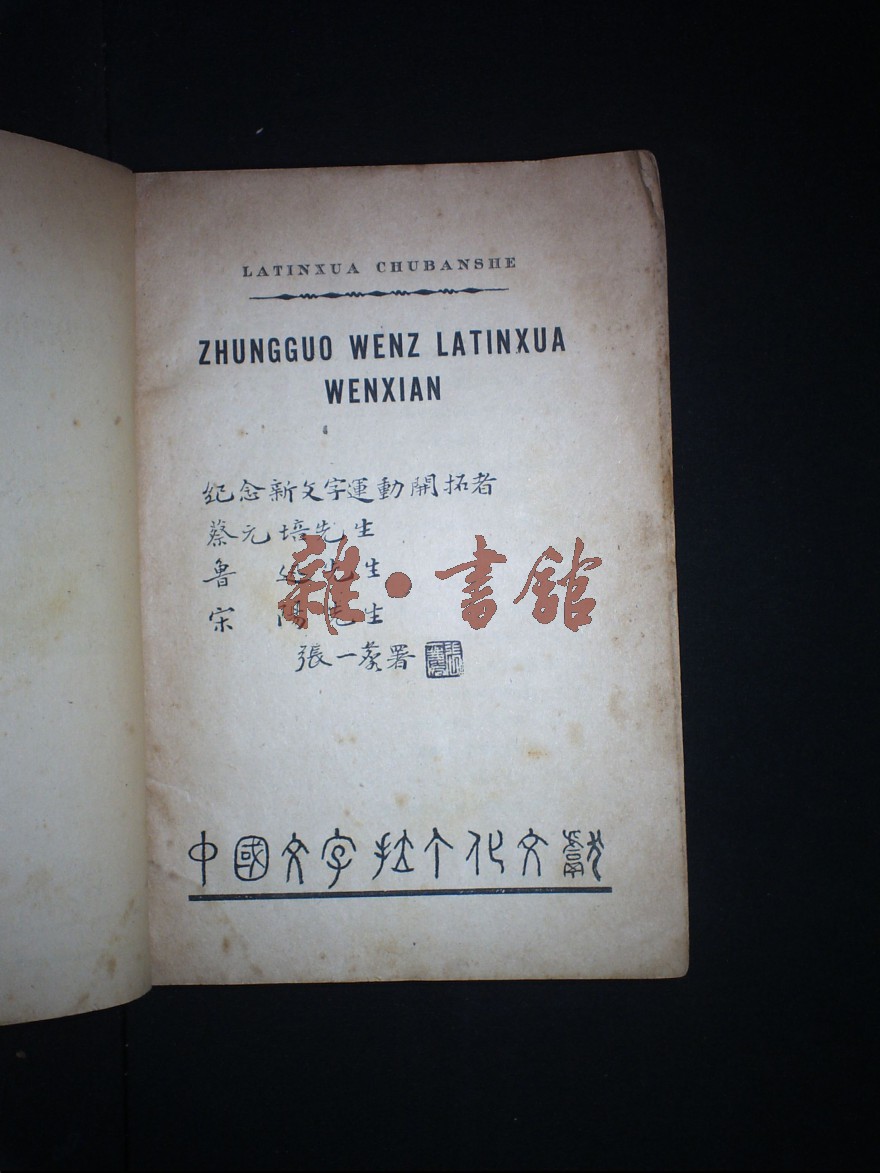 LATINXUA CHUBANSHE
ZHUNGGUO WENZ LATINXUA
WENXIAN
紀念新文字運動開拓者
蔡元培先生
魯迅先生
宋陽先生
張一麐署
雜·書館
中國文字拉丁化文獻